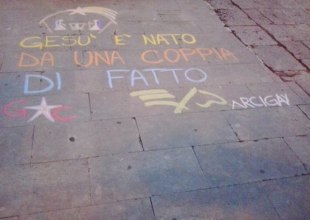 GESU' È NATO
DA UNA COPPIA
DI FATTO
G C
ARCIGAY